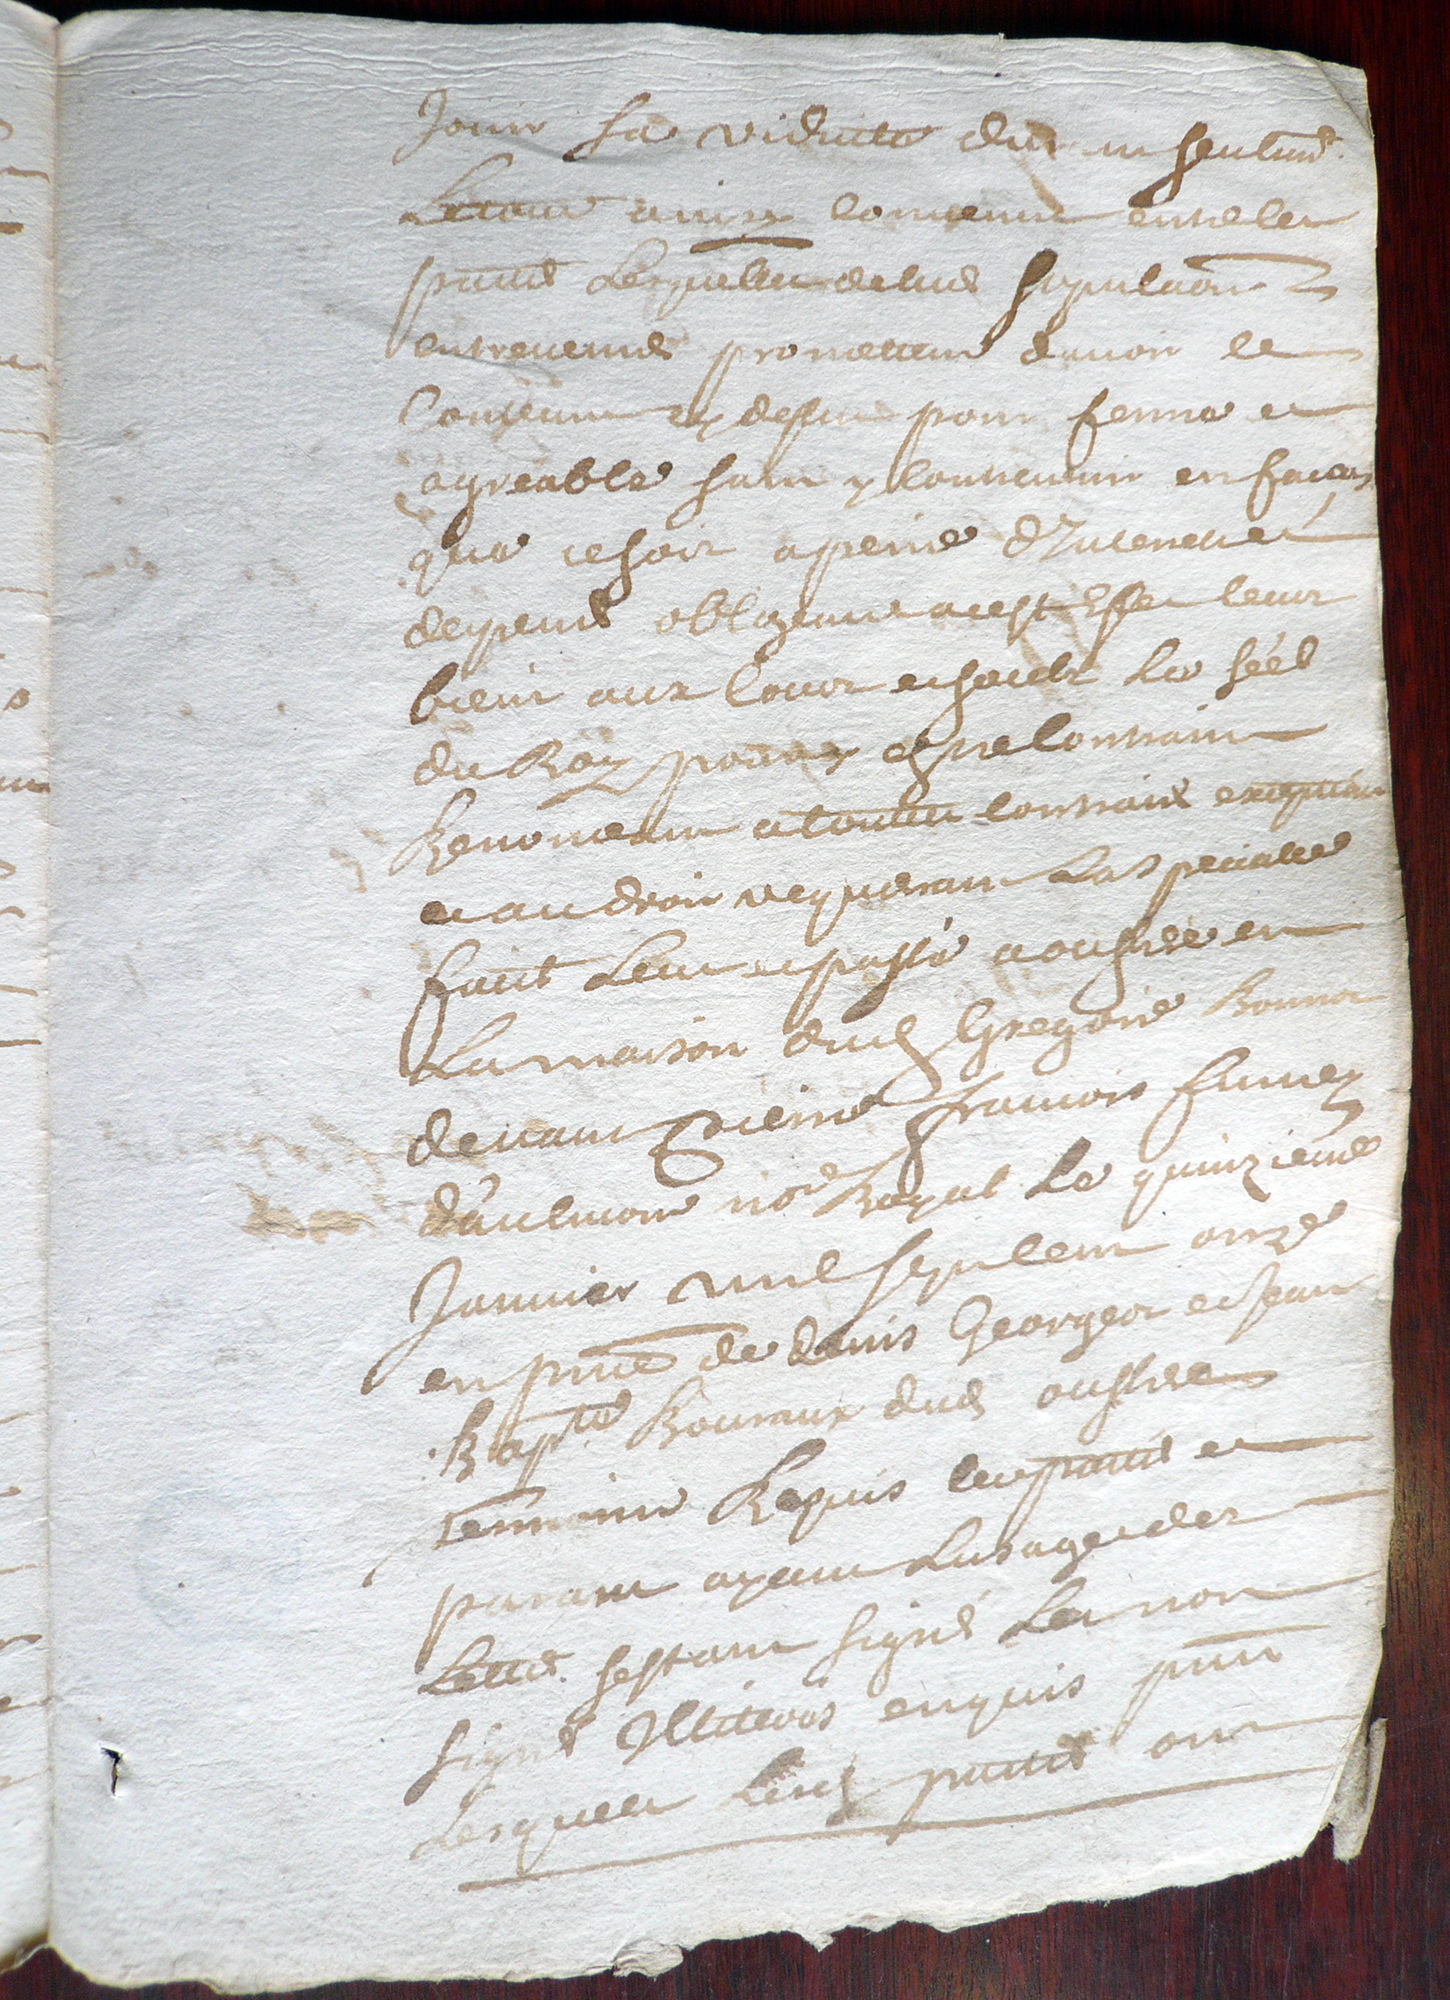 Jouir sa viduite dur seulmt
Le tout ainsy convenu entre les
parties lesquelles de leurs stipulaõn
entrevenues promettant d'avoir le
Contenu cy dessus pour ferme et
agreable sans y contrevenir en facon
que ce soit a peine d'Interetz et
despens obligeant a cest Effect leurs
biens aux Cour et soubz Le séel
du Roy pour y estre contrains
Renonceant a toutes contraires exceptions
et au droit requerant La speciale
fait Leu et passé a oustre en
La maison dud Gregoire Bonnor
devant Pierre francois fumey
d'aulmont nore Royal Le quinzieme
Janvier mil sept cent onze
en pnce de denis Georgeot et Jean
Bapte Bouraux dud oustre
temoins Requis les parties et
parans ayans L'usage des
Lettres s'estans signés Les non
signés Illiteres enquis pnt
Lesquels Lesd parties ont